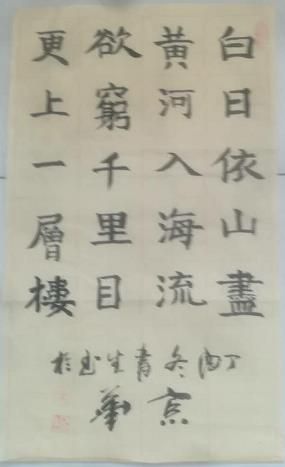 白日依山盡
黃河入海流
欲窮千里目
更上一層樓
丁酉冬青生書於
京華